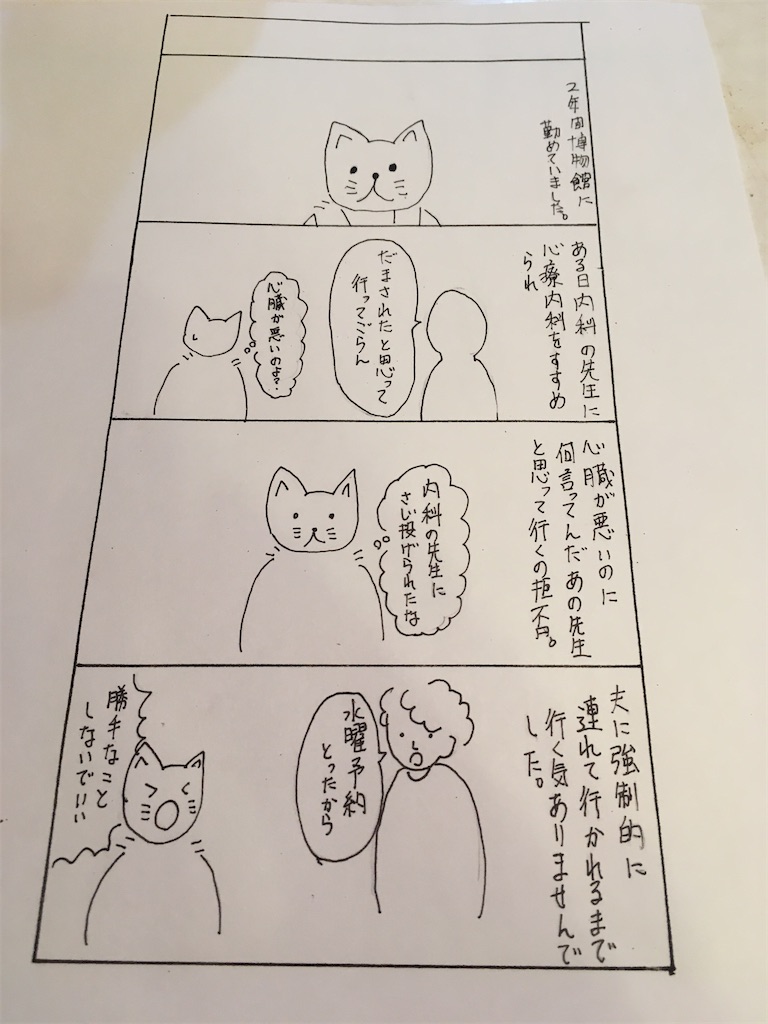 2年間博物館に
勤めていました。
ある日内科の先生に
心療内科をすすめ
られ
だまされたと思って
行ってごらん
心臓が悪いのよ?
心臓が悪いのに
何言ってんだあの先生
と思って行くの拒否。
内科の先生に
さじ投げられたな
夫に強制的に
連れて行かれるまで
行く気ありませんで
した。
水曜予約
とったから
勝手なこと
しないでいい